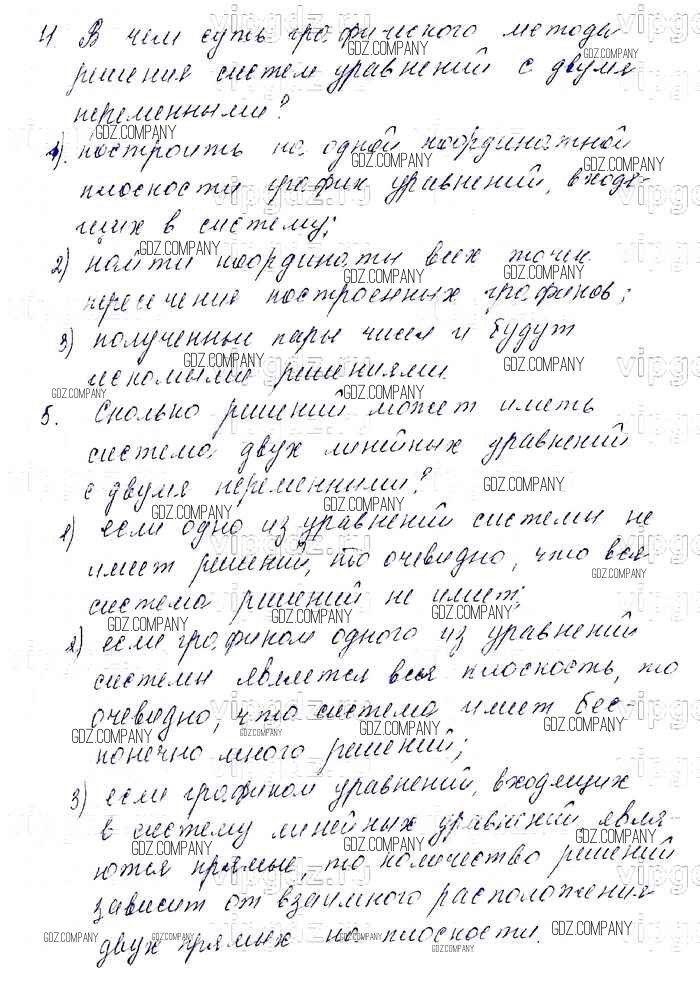 4. В чем суть графического метода
решения систем уравнений с двумя
переменными?
1). построить на одной координатной
плоскости график уравнений, входя-
щих в систему;
2) найти координаты всех точек
пересечения построенных графиков;
3) полученные пары чисел и будут
искомыми решениями.
5. Сколько решений может иметь
система двух линейных уравнений
с двумя переменными?
1) если одно из уравнений системы не
имеет решений, то очевидно, что вся
система решений не имеет;
2) если графиком одного из уравнений
системы является вся плоскость, то
очевидно, что система имеет бес-
конечно много решений;
3) если графиком уравнений, входящих
в систему линейных уравнений явля-
ются прямые, то количество решений
зависит от взаимного расположения
двух прямых на плоскости.